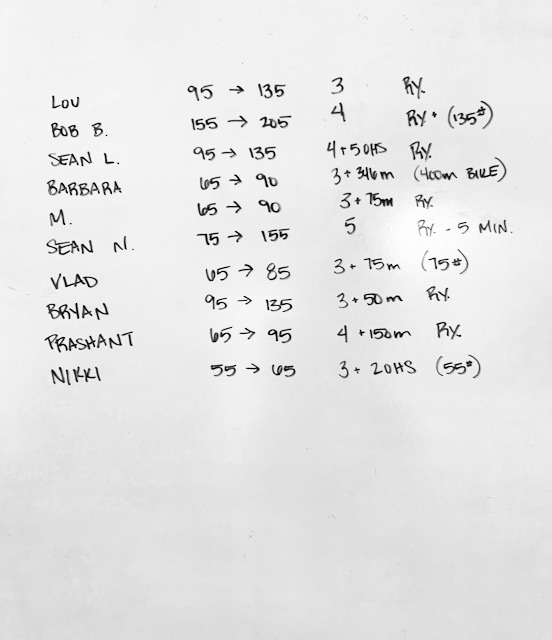 LOU 95 → 135 3 RY.
BOB B. 155 → 205 4 RY + (135#)
SEAN L. 95 → 135 4 + 5 OHS RY.
BARBARA 65 → 90 3 + 346m (400m BIKE)
M. 65 → 90 3 + 75m RY.
SEAN N. 75 → 155 5 RY. - 5 MIN.
VLAD 65 → 85 3 + 75m (75#)
BRYAN 95 → 135 3 + 50m RY.
PRASHANT 65 → 95 4 + 150m RY.
NIKKI 55 → 65 3 + 2 OHS (55#)